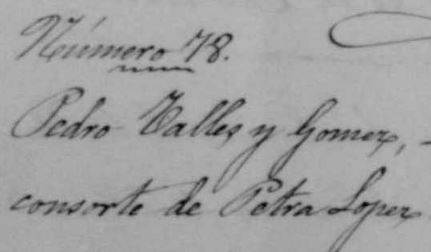 Número 78.
Pedro Valles y Gomez,
consorte de Petra Lopez